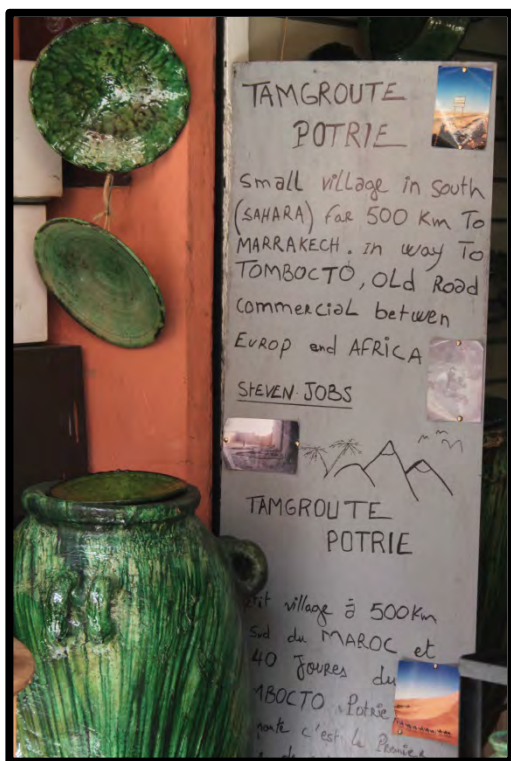 TAMGROUTE
POTRIE
Small village in south
(SAHARA) FAR 500 Km To
MARRAKECH. in way To
TOMBOCTO, OLd Road
Commercial betwen
EUROP and AFRICA
STEVEN JOBS
TAMGROUTE
POTRIE
village à 500Km
Sud du MAROC et
40 Joures du
Potrie
c'est le Premier